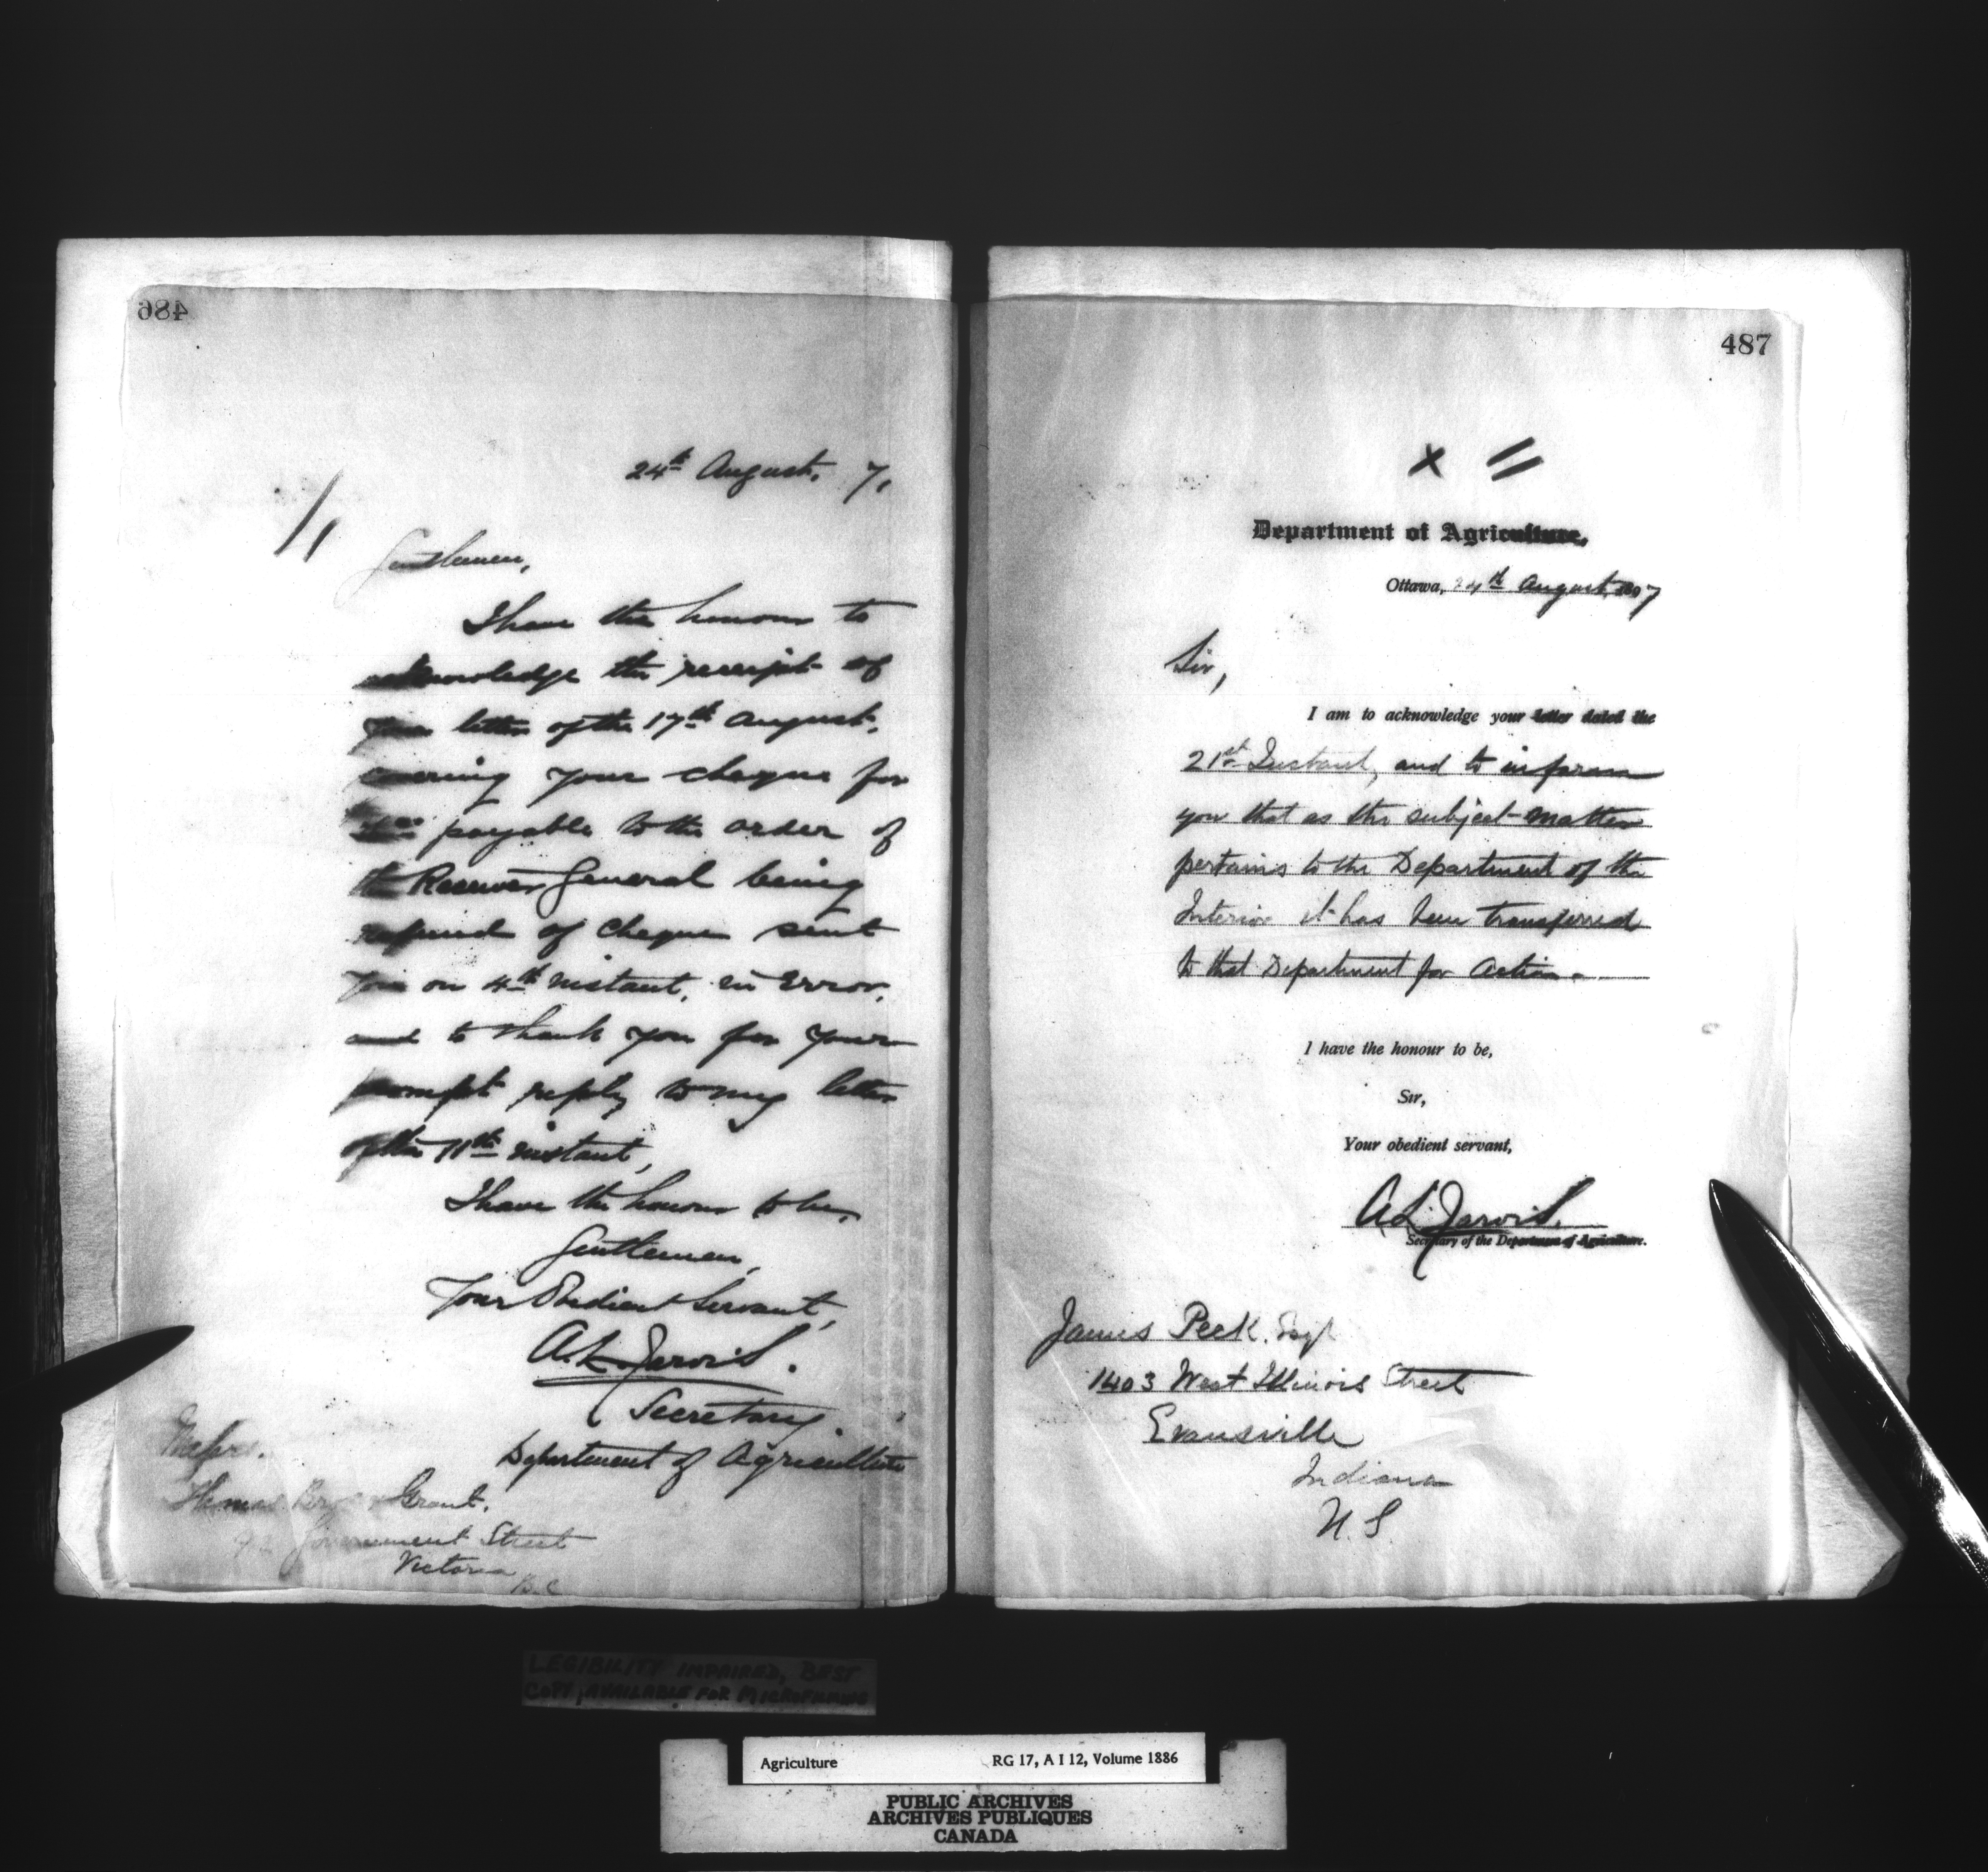 486
24th August. 7.
Gentlemen,
I have the honour to
acknowledge the receipt of
your letter of the 17th August,
covering your cheque for
payable to the order of
the Receiver General being
refund of cheque sent
you on 4th instant, in error,
and to thank you for your
prompt reply to my letter
of the 11th instant,
I have the honour to be,
Gentlemen,
Your Obedient Servant,
A. L. Jarvis.
Secretary.
Department of Agriculture
Messrs.
Grant,
Government Street
Victoria
B.C
487
x //
Department of Agriculture,
Ottawa, 24th August, 1897
Sir,
I am to acknowledge your letter dated the
21st Instant, and to inform
you that as the subject-matter
pertains to the Department of the
Interior it has been transferred
to that Department for action.
I have the honour to be,
Sir,
Your obedient servant,
A. L. Jarvis.
Secretary of the Department of Agriculture.
James Peck. Esqr
1403 West Illinois Street
Evansville
Indiana
U.S
LEGIBILITY IMPAIRED, BEST
COPY AVAILABLE FOR MICROFILMING
Agriculture RG 17, A I 12, Volume 1886
PUBLIC ARCHIVES
ARCHIVES PUBLIQUES
CANADA